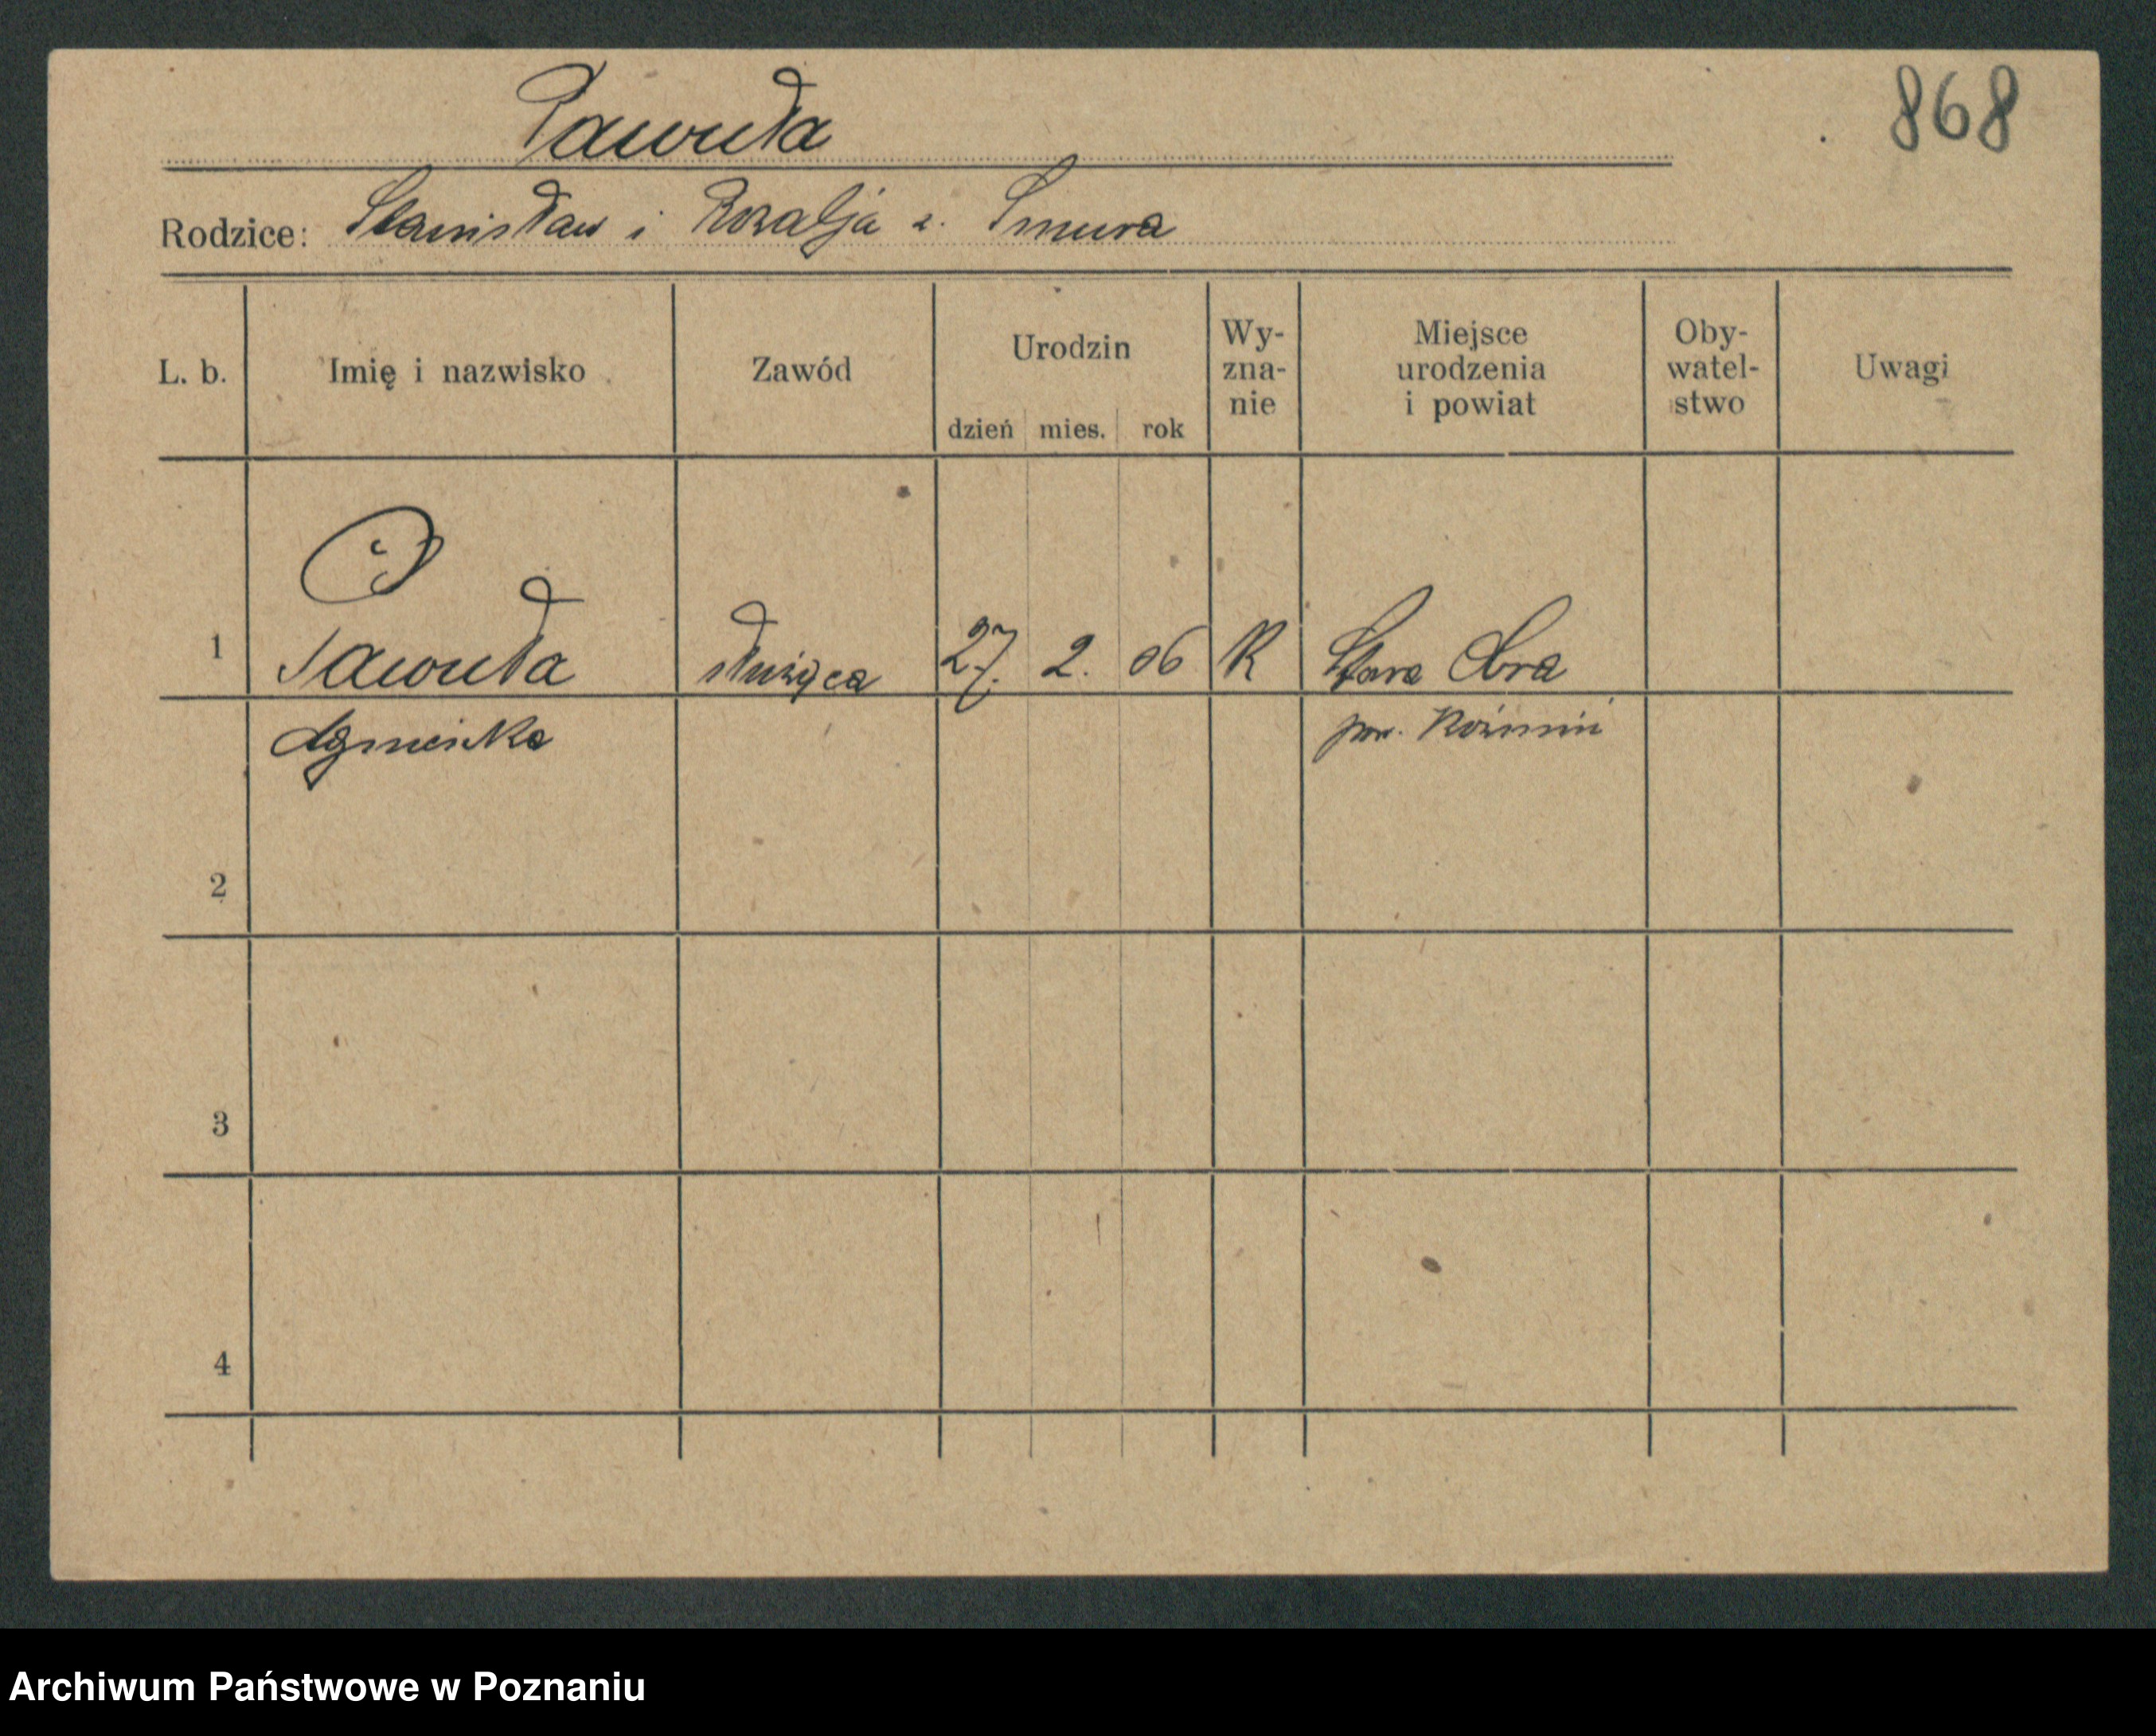 868
Pawuła
Rodzice: Stanisław i Rozalja z. Smura
L. b. Imię i nazwisko Zawód Urodzin dzień mies. rok Wy-zna-nie Miejsce urodzenia i powiat Oby-watel-stwo Uwagi
1 Pawuła służąca 27. 2. 06 R Stara Obra
Agnieszka pow. Koźmin
2
3
4
Archiwum Państwowe w Poznaniu